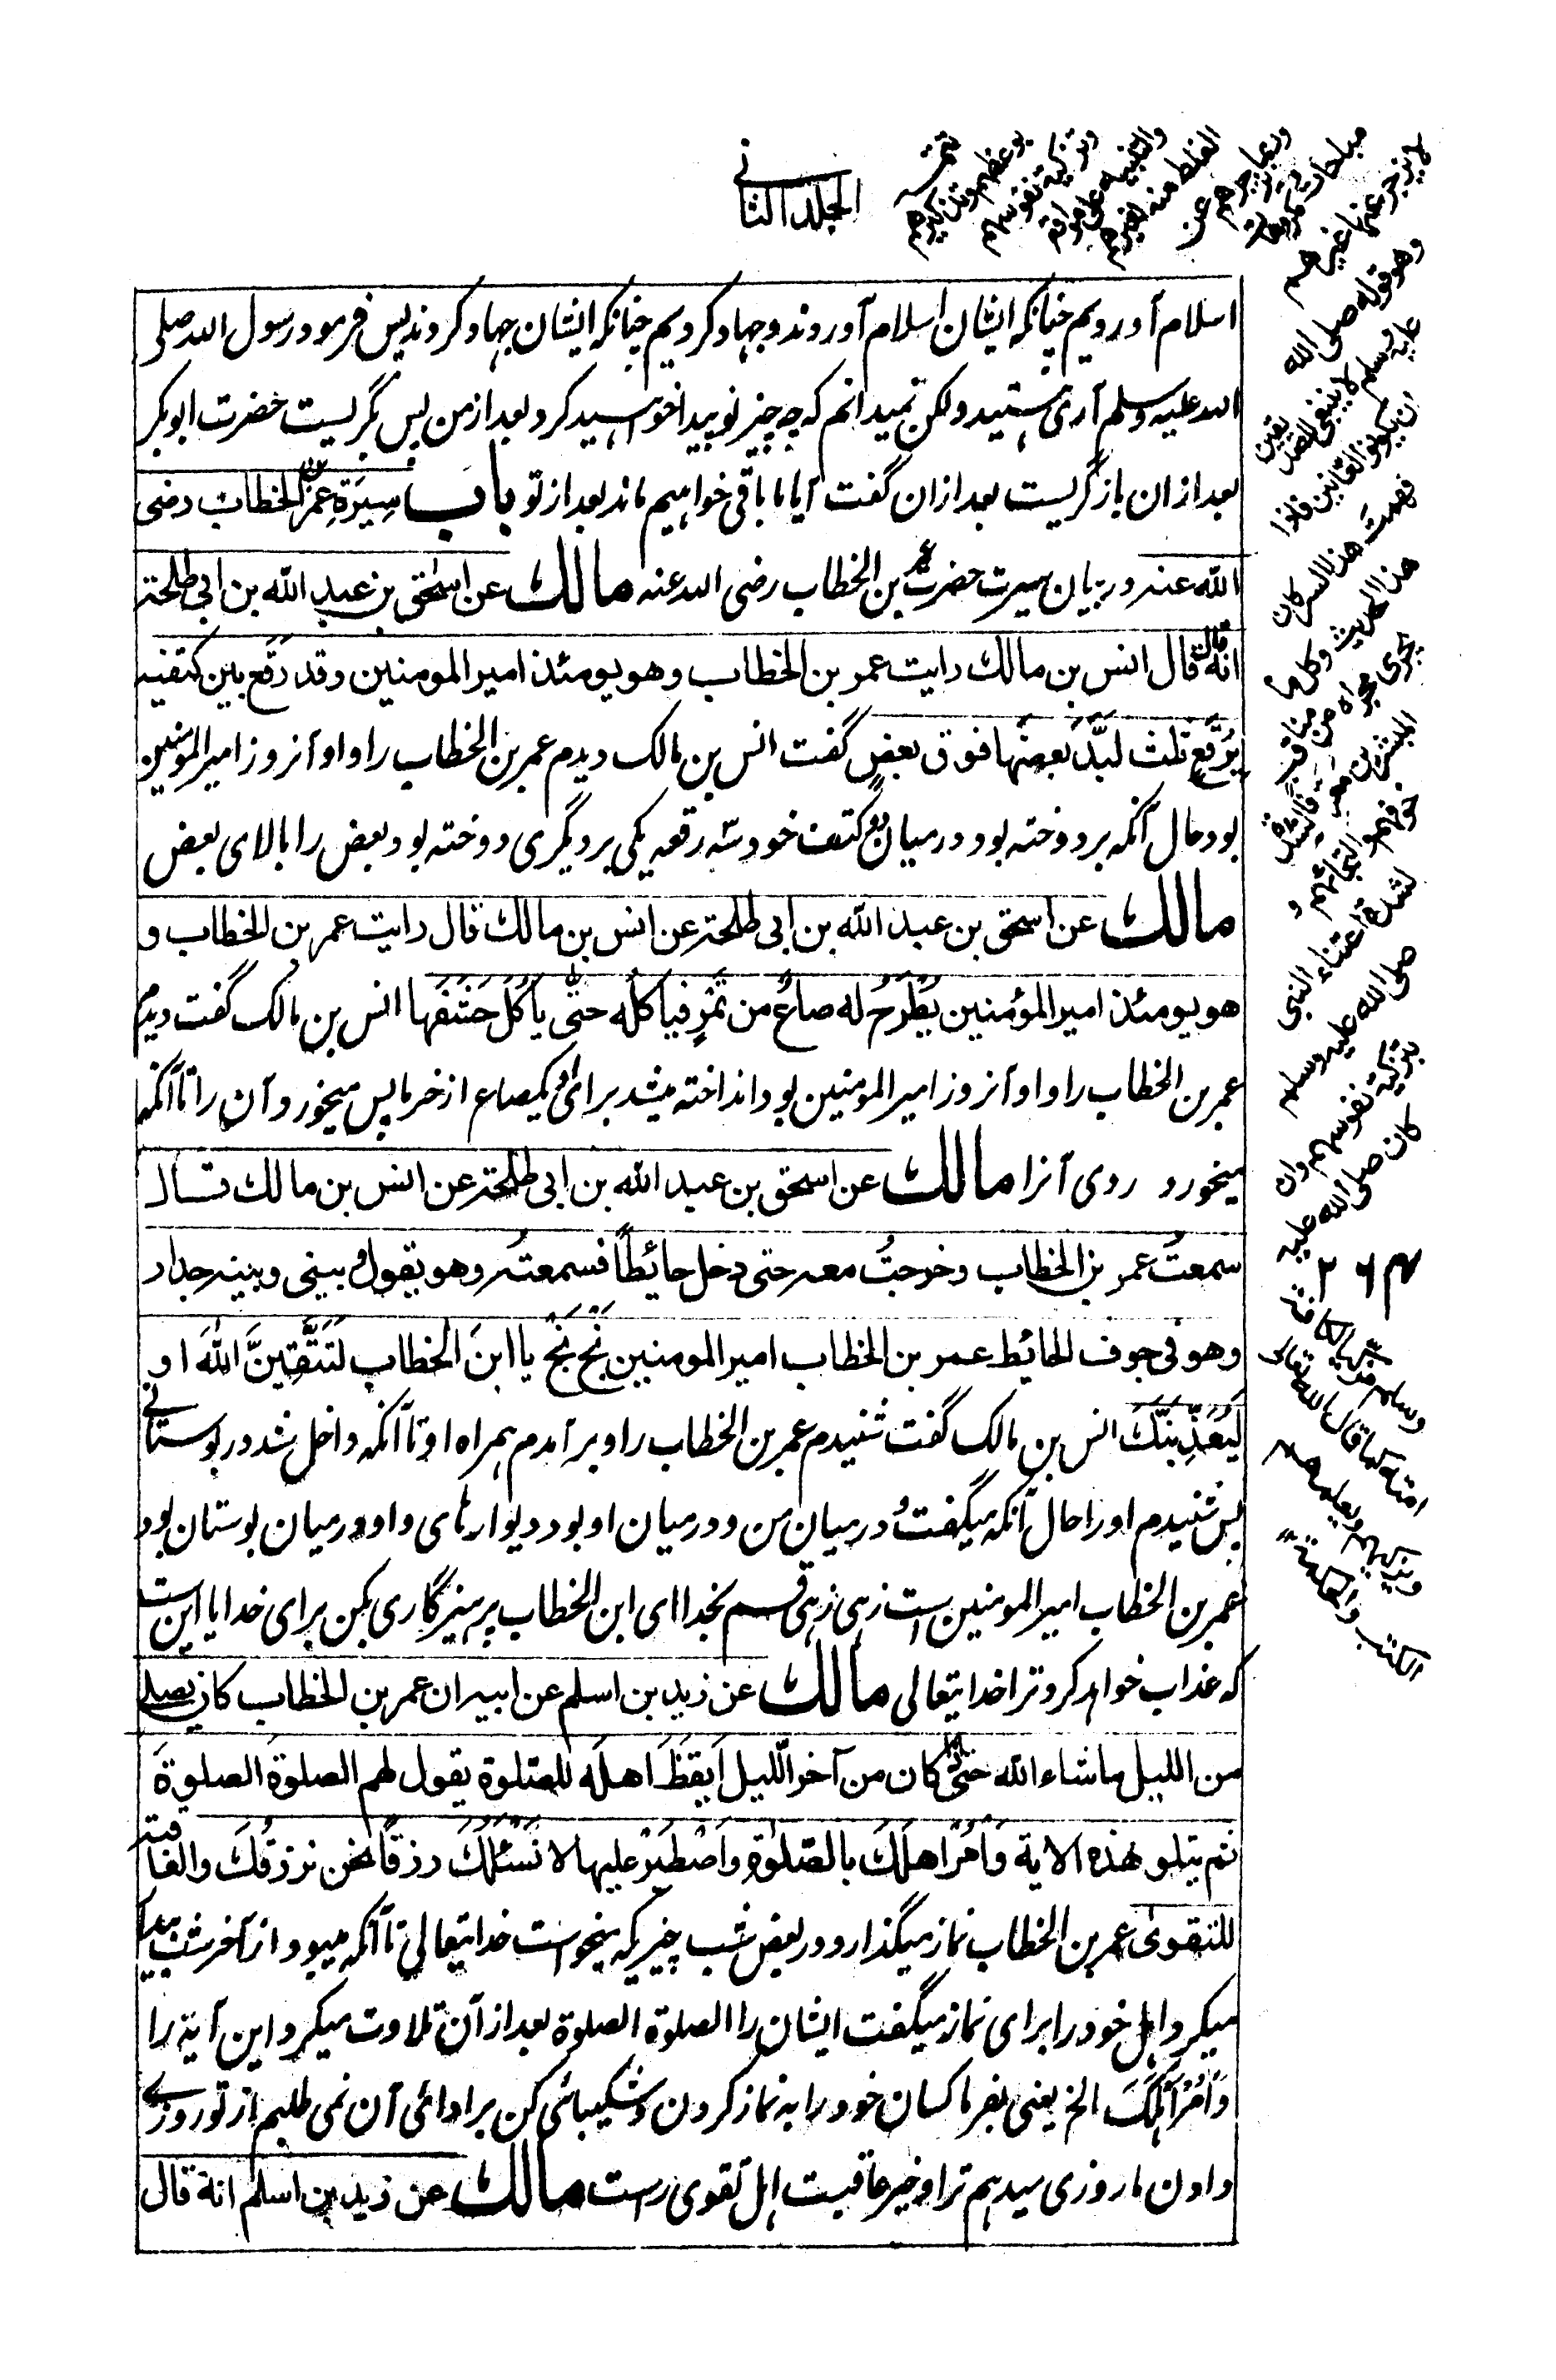 الجلد الثانی
اسلام آوردیم چنانکہ ایشان اسلام آوردند و جہاد کردیم چنانکہ ایشان جہاد کردند پس فرمود رسول اللہ صلی
اللہ علیہ وسلم آری ہستید ولکن نمیدانم کہ چہ چیز نو پیدا خواہید کرد بعد از من پس بگریست حضرت ابوبکر
بعد ازان باز گریست بعد ازان گفت آیا ما باقی خواہیم ماند بعد از تو باب سِیرَةِ عُمَرَ بن الخطاب رضی
الله عنه در بیان سیرت حضرت عمر بن الخطاب رضی اللہ عنہ مالك عن اسحٰق بن عبد الله بن ابی طلحة
انه قال قال انس بن مالك رایت عمر بن الخطاب وهو یومئذ امیر المومنین وقد رَقَّع بین کتفیه
بِرُقَعٍ ثلث لَبَّدَ بعضَها فوق بعض گفت انس بن مالک دیدم عمر بن الخطاب را و او آنروز امیر المومنین
بود حال آنکہ بر دوختہ بود درمیان دو کتف خود سہ رقعہ یکی بر دیگری دوختہ بود بعض را بالای بعض
مالك عن اسحق بن عبد الله بن ابی طلحة عن انس بن مالك قال رایت عمر بن الخطاب و
هو یومئذ امیر المؤمنین یُطْرَحُ له صاعٌ من تَمْرٍ فیاکله حتّٰی یاکُلَ حَشَفَها انس بن مالک گفت دیدم
عمر بن الخطاب را و او آنروز امیر المومنین بود انداختہ میشد برای او یکصاع از خرما پس میخورد آن را تا آنکہ
میخورد ردی آنرا مالك عن اسحق بن عبد الله بن ابی طلحة عن انس بن مالك قال
سمعتُ عمر بن الخطاب وخرجتُ معه حتی دخل حائِطًا فسمعتُه وهو یقول و بینی وبینه جدار
وهو فی جوف الحائط عمر بن الخطاب امیر المومنین بَخٍ بَخٍ یا ابنَ الخطاب لَتَتَّقِیَنَّ اللهَ او
لَیُعَذِّبَنَّكَ انس بن مالک گفت شنیدم عمر بن الخطاب را و برآمدم ہمراہ او تا آنکہ داخل شد در بوستانے
پس شنیدم او را حال آنکہ میگفت و درمیان من و درمیان او بود دیوارہای و او درمیان بوستان بود
عمر بن الخطاب امیر المومنین ست زہی زہی قسم بخدا ای ابن الخطاب پرہیزگاری بکن برای خدا یا این ست
کہ عذاب خواہد کرد ترا خدایتعالی مالك عن زید بن اسلم عن ابیه ان عمر بن الخطاب کان یصلی
من اللیل ما شاء الله حتی اذا کان من آخر اللّیل اَیقَظَ اهلَه للصّلوة یقول لهم الصلوةَ الصلوةَ
ثم یتلو هذه الایة وَأْمُرْ اهلَكَ بالصّلٰوةِ وَاصْطَبِرْ علیها لا نَسْئَلُكَ رزقًا نحن نرزقُكَ والعاقبة
للتقوٰی عمر بن الخطاب نماز میگذارد در بعض شب چیزیکہ میخواست خدایتعالی تا آنکہ میبود از آخر شب بیدار
میکرد اہل خود را برای نماز میگفت ایشان را الصلوة الصلوة بعد از آن تلاوت میکرد این آیة را
وَأْمُرْ اَہْلَکَ الخ یعنی بفرما کسان خود را بہ نماز کردن و شکیبائی کن بر ادائی آن نمی طلبیم از تو روزے
دادن ما روزی میدہیم ترا و خیر عاقبت اہل تقوی راست مالك عن زید بن اسلم انه قال
لا ینزجر عنها غیرهم
وهو قوله صلی الله
علیه وسلم لا ینبغی للصدیقین
ان یکونوا لعّانین فاذا
فهمتَ هذا السر کان
هذا الحدیث وکل ما
یجری مجراه من مناقب
لشدة اعتناء النبی
صلی الله علیه وسلم
بتزکیة نفوسهم وان
کان صلی الله علیه
۲۶۴
امته کما قال الله تعالی
ویزکیهم ویعلمهم
الکتب والحکمة